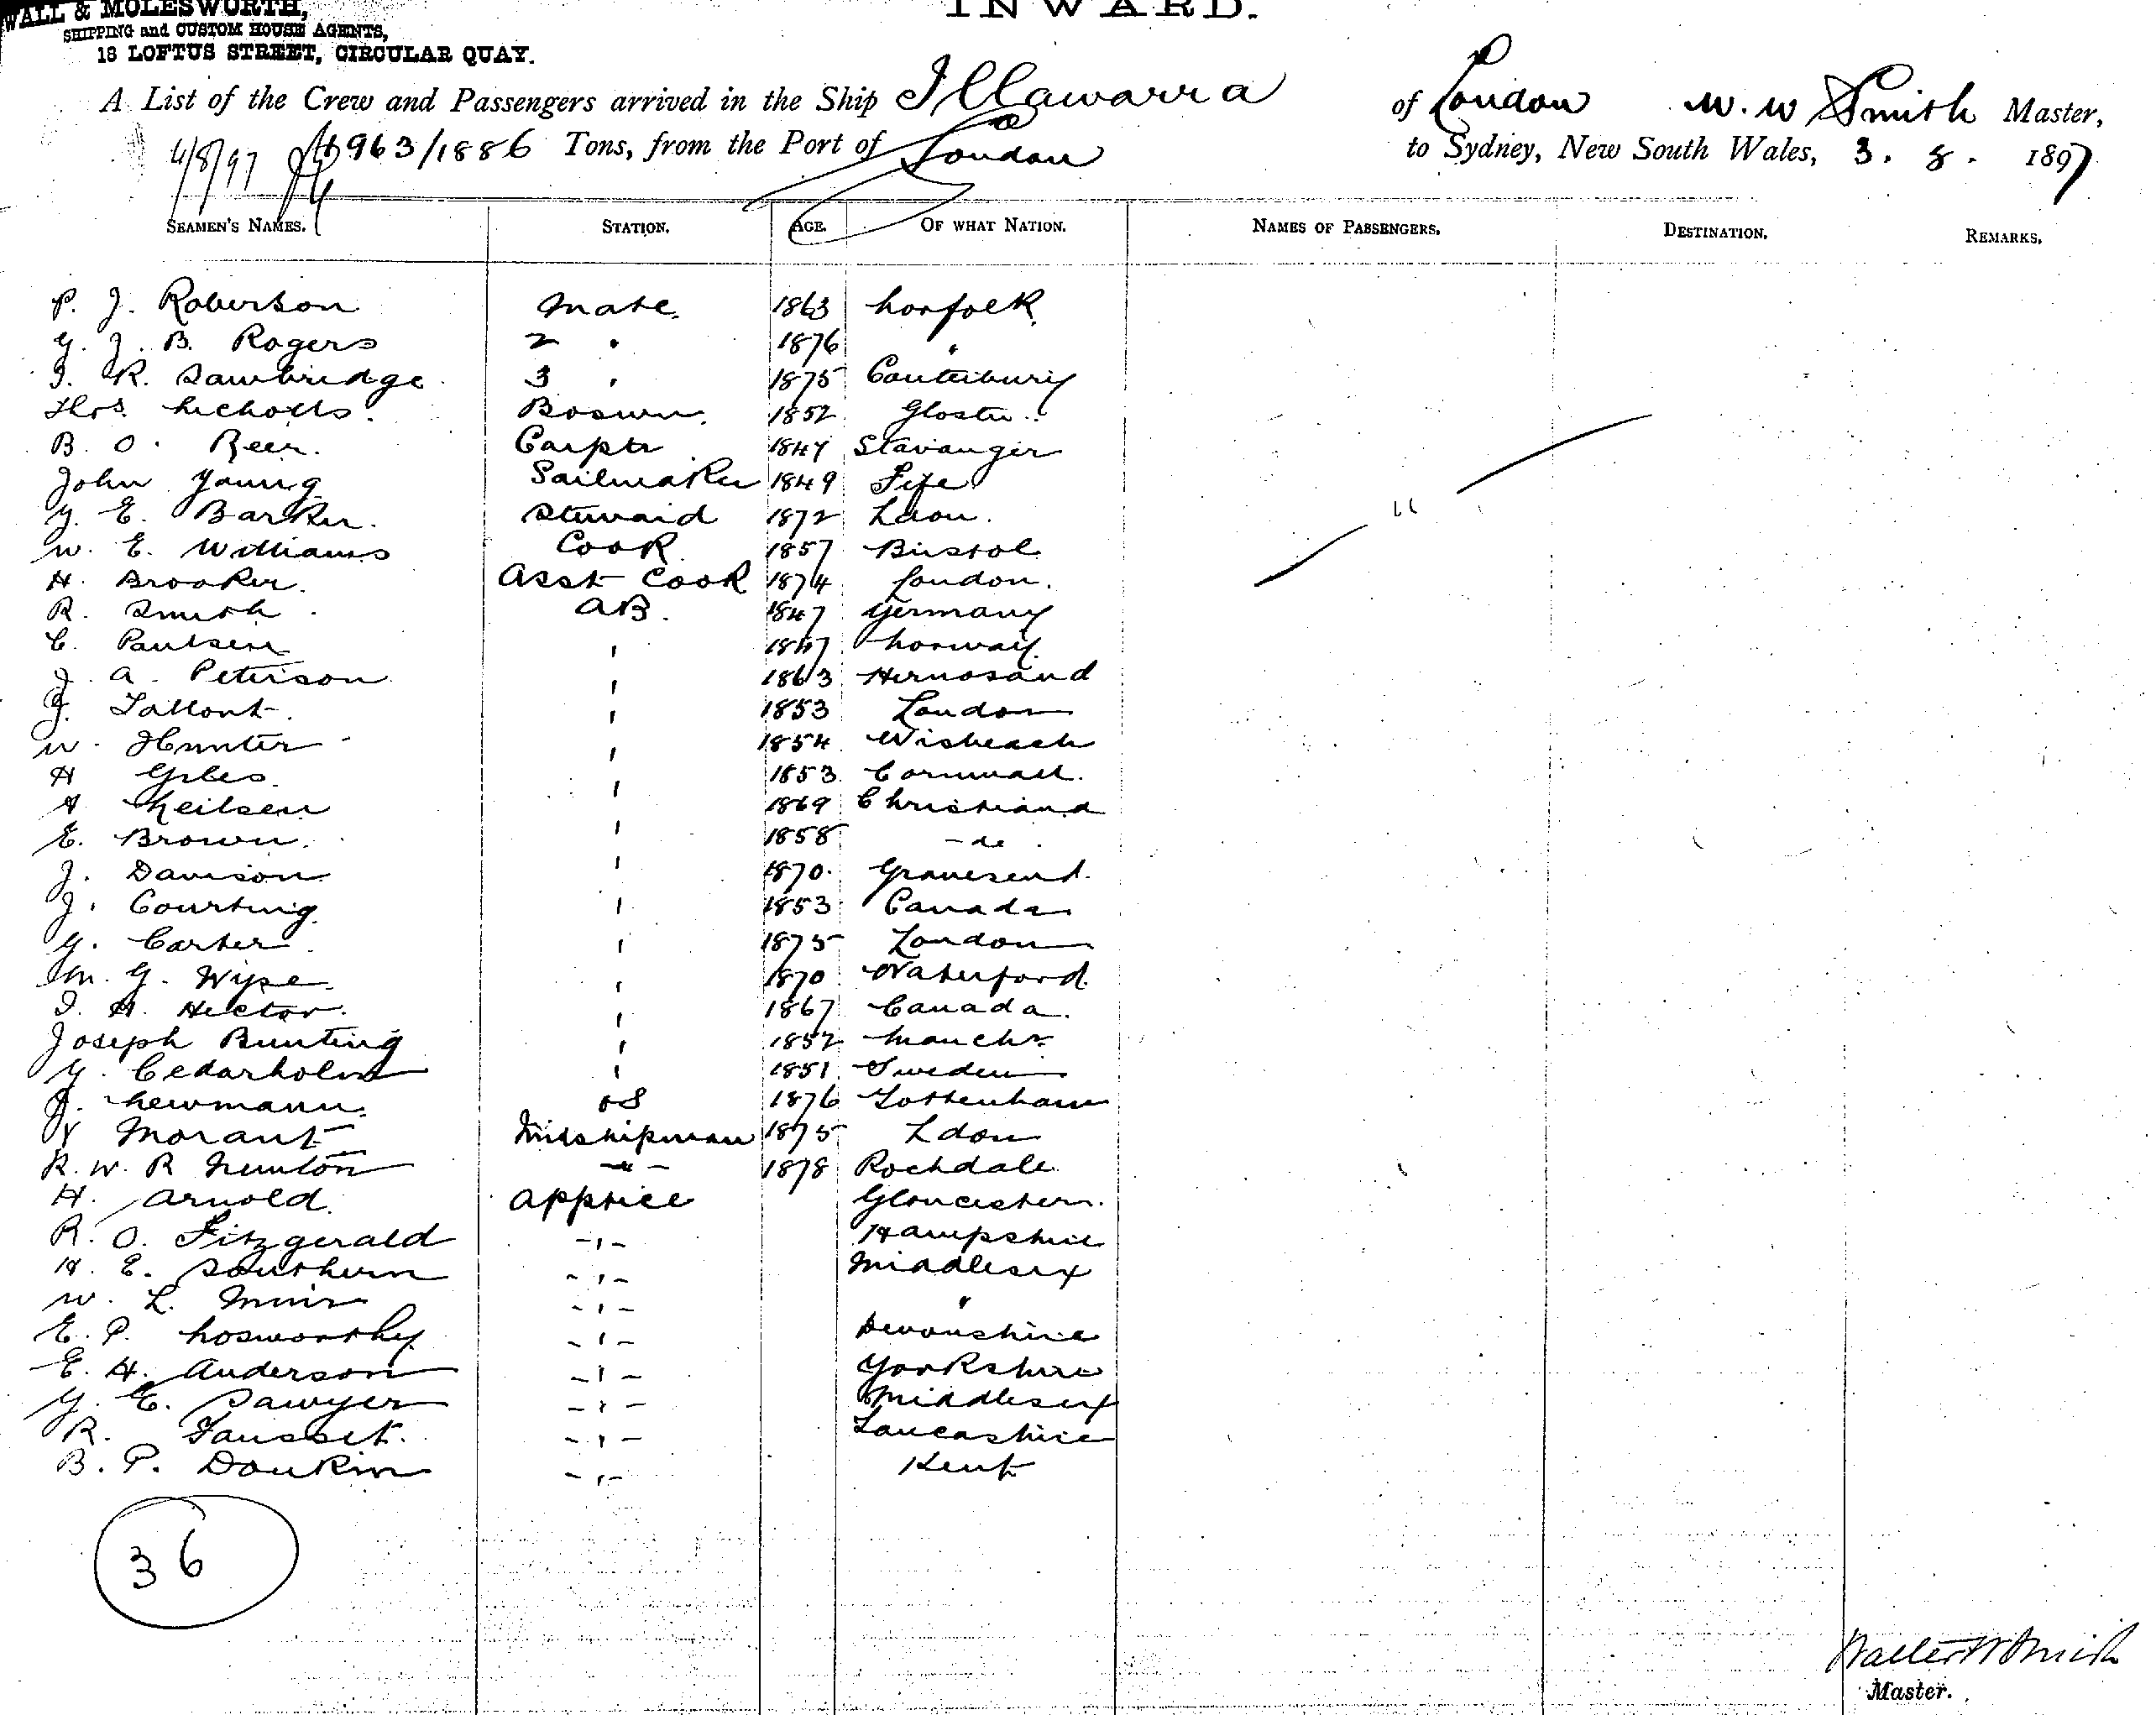 WALL & MOLESWORTH,
SHIPPING and CUSTOM HOUSE AGENTS,
18 LOFTUS STREET, CIRCULAR QUAY.
INWARD.
A List of the Crew and Passengers arrived in the Ship Illawarra of London W. W Smith Master,
4/8/97 1963/1886 Tons, from the Port of London to Sydney, New South Wales, 3. 8. 1897
SEAMEN'S NAMES. STATION. AGE. OF WHAT NATION. NAMES OF PASSENGERS. DESTINATION. REMARKS.
P. J. Roberson Mate. 1863 Norfolk
G. J. B. Rogers 2 " 1876 "
J. R. Sawbridge 3 " 1875 Canterbury
Thos Nicholls. Boswn. 1852 Gloster
B. O. Reer. Carptr 1847 Stavanger
John Young Sailmaker 1849 Fife
G. E. Barker. Steward 1872 Ldon.
W. E. Williams Cook 1857 Bristol
H. Brooker. Asst Cook 1874 London.
R. Smith AB. 1847 Germany
C. Paulsen " 1847 Norway.
J. A. Peterson " 1863 Hernosand
J. Lamont " 1853 London
W. Hunter " 1854 Wisbeach
H Giles " 1853 Cornwall.
A Neilsen " 1869 Christiana
E. Brown. " 1858 - do
J. Davison " 1870 Gravesend.
J. Courting " 1853 Canada
G. Carter " 1875 London
M. G. Wyse " 1870 Waterford.
J. H. Hector. " 1867 Canada.
Joseph Bunting " 1852 Manchr
G. Cedarholm " 1851 Sweden
J. Newmann. OS 1876 Tottenham
Morant Midshipman 1875 Ldon
R. W. R Newton - " - 1878 Rochdale
H. Arnold. Apptice Gloucester.
R. O. Fitzgerald - " - Hampshire
H. E. Southern - " - Middlesex
W. L. Muir - " - "
E. P. Nosworthy - " - Devonshire
E. H. Anderson - " - Yorkshire
G. E. Sawyer - " - Middlesex
R. Fausset. - " - Lancashire
B. P. Donkin - " - Kent
36
Walter W Smith
Master.